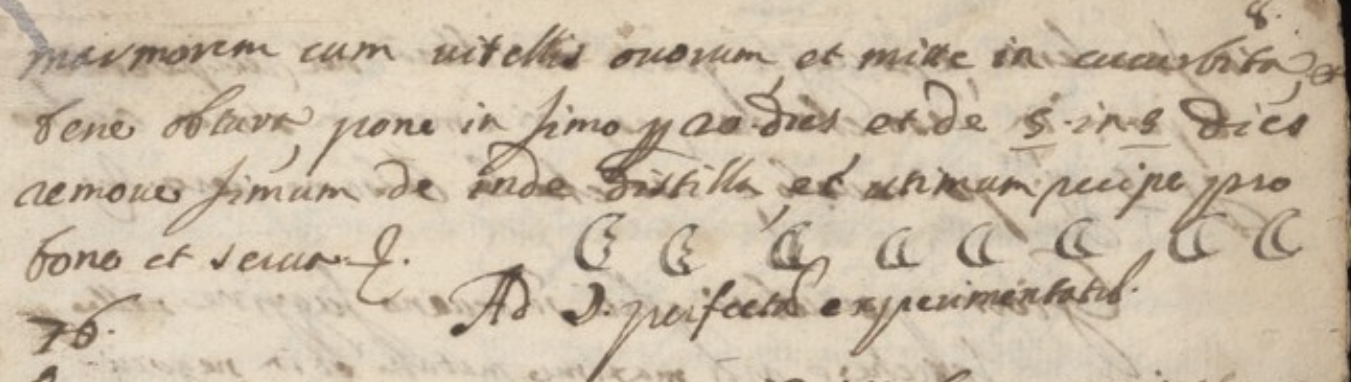 8.
marmorem cum uitellis ouorum et mitte in cucurbita, et
bene obtura, pone in fimo p 20 dies et de 5 in 5 dies
remoue fimum de inde distilla et ultimum recipe pro
bono et serua.
☾ ☾ ☾ ☾ ☾ ☾ ☾ ☾
76. Ad ☽. perfectā experimentatū.